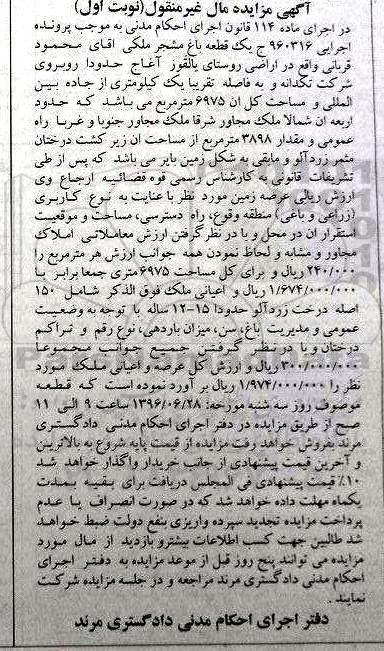 آگهی مزایده مال غیرمنقول(نوبت اول)
در اجرای ماده ۱۱۴ قانون اجرای احکام مدنی به موجب پرونده
اجرایی ۹۶۰۳۱۶ ج یک قطعه باغ مشجر ملکی آقای محمود
قربانی واقع در اراضی روستای یالقوز آغاج حدودا روبروی
شرکت تکدانه و به فاصله تقریبا یک کیلومتری از جاده بین
المللی و مساحت کل ان ۶۹۷۵ مترمربع می باشد که حدود
اربعه ان شمالا ملک مجاور شرقا ملک مجاور جنوبا و غربا راه
عمومی و مقدار ۳۸۹۸ مترمربع از مساحت ان زیر کشت درختان
مثمر زردآلو و مابقی به شکل زمین بایر می باشد که پس از طی
تشریفات قانونی به کارشناس رسمی قوه قضائیه ارجاع وی
ارزش ریالی عرصه زمین مورد نظر با عنایت به نوع کاربری
(زراعی و باغی) منطقه وقوع، راه دسترسی، مساحت و موقعیت
استقرار ان در محل و با در نظر گرفتن ارزش معاملاتی املاک
مجاور و مشابه و لحاظ نمودن همه جوانب ارزش هر مترمربع را
۲۴۰/۰۰۰ ریال و برای کل مساحت ۶۹۷۵ متری جمعا برابر با
۱/۶۷۴/۰۰۰/۰۰۰ ریال و اعیانی ملک فوق الذکر شامل ۱۵۰
اصله درخت زردآلو حدودا ۱۵-۱۲ ساله با توجه به وضعیت
عمومی و مدیریت باغ، سن، میزان باردهی، نوع رقم و تراکم
درختان و با در نظر گرفتن جمیع جوانب مجموعا
۳۰۰/۰۰۰/۰۰۰ ریال و ارزش کل عرصه و اعیانی ملک مورد
نظر را ۱/۹۷۴/۰۰۰/۰۰۰ ریال بر آورد نموده است که قطعه
موصوف روز سه شنبه مورخه: ۱۳۹۶/۰۶/۲۸ ساعت ۹ الی ۱۱
صبح از طریق مزایده در دفتر اجرای احکام مدنی دادگستری
مرند بفروش خواهد رفت مزایده از قیمت پایه شروع به بالاترین
و آخرین قیمت پیشنهادی از جانب خریدار واگذار خواهد شد
۱۰٪ قیمت پیشنهادی فی المجلس دریافت برای بقیه بمدت
یکماه مهلت داده خواهد شد که در صورت انصراف یا عدم
پرداخت مزایده تجدید سپرده واریزی بنفع دولت ضبط خواهد
شد طالبین جهت کسب اطلاعات بیشترو بازدید از مال مورد
مزایده می توانند پنج روز قبل از موعد مزایده به دفتر اجرای
احکام مدنی دادگستری مرند مراجعه و در جلسه مزایده شرکت
نمایند .
دفتر اجرای احکام مدنی دادگستری مرند